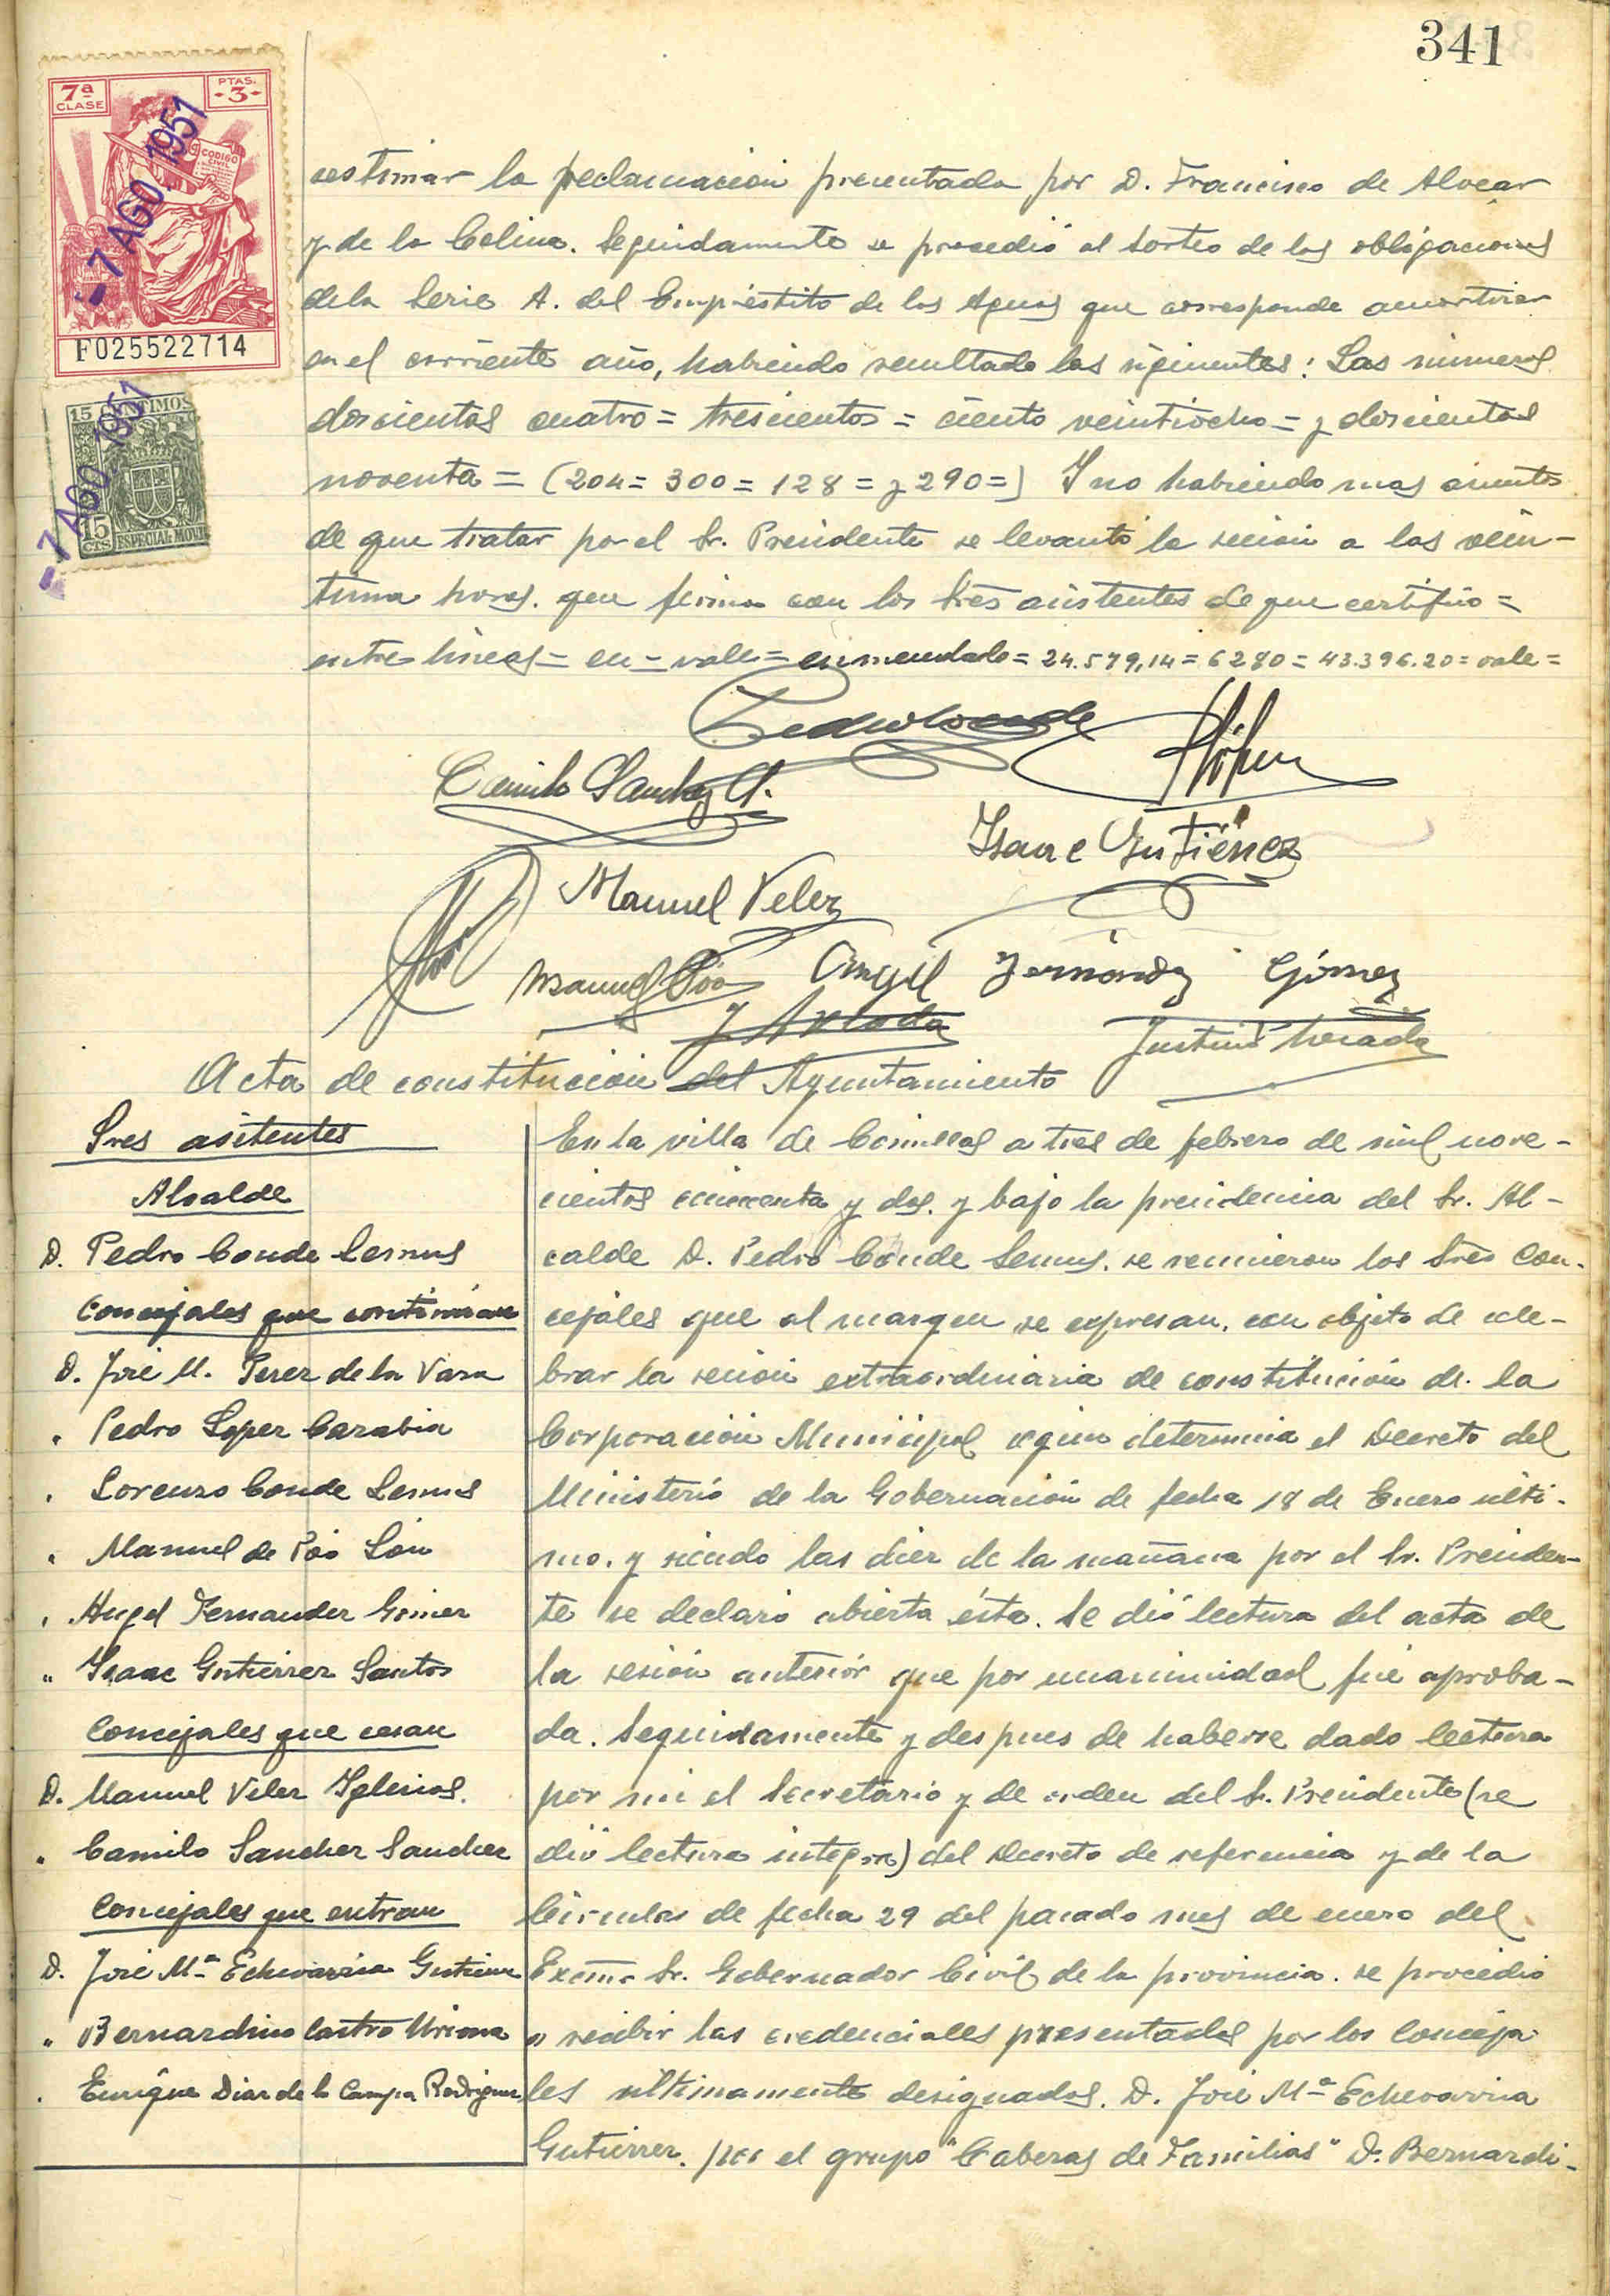 341
7ª CLASE
PTAS. -3-
CODIGO CIVIL
- 7 AGO 1951
F025522714
15 CENTIMOS
- 7 AGO 1951
15 CTS ESPECIAL MOVIL
estimar la reclamación presentada por D. Francisco de Alvear
y de la Colina. Seguidamente se procedió al sorteo de las obligaciones
de la Serie A. del Empréstito de las Aguas que corresponde amortizar
en el corriente año, habiendo resultado las siguientes: Las números
doscientos cuatro = trescientos = ciento veintiocho = y doscientos
noventa = (204 = 300 = 128 = y 290 =) Y no habiendo mas asuntos
de que tratar por el Sr. Presidente se levantó la sesión a las vein-
tiuna horas. que firma con los Sres asistentes de que certifico =
entre lineas = en = vale = enmendado = 24.579,14 = 6280 = 43.396.20 = vale =
Pedro Conde
Camilo Sanchez S.
Isaac Gutiérrez
Manuel Velez
Manuel Póo Angel Fernandez Gómez
Acta de constitución del Ayuntamiento
Sres asitentes
Alcalde
D. Pedro Conde Lemus
Concejales que continúan
D. José M. Perez de la Vara
" Pedro Lopez Carabia
" Lorenzo Conde Lemus
" Manuel de Póo
" Angel Fernandez Gomez
" Isaac Gutierrez Santos
Concejales que cesan
D. Manuel Velez Iglesias.
" Camilo Sanchez Sanchez
Concejales que entran
D. José Mª Echevarria Gutierrez
" Bernardino Castro
" Enrique Diaz de la Campa Rodriguez
En la villa de Comillas a tres de febrero de mil nove-
cientos cincuenta y dos. y bajo la presidencia del Sr. Al-
calde D. Pedro Conde Lemus. se reunieron los Sres Con-
cejales que al margen se expresan. con objeto de cele-
brar la sesión extraordinaria de constitución de la
Corporación Municipal segun determina el Decreto del
Ministerio de la Gobernación de fecha 18 de Enero ulti-
mo. y siendo las diez de la mañana por el Sr. Presiden-
te se declaró abierta ésta. Se dió lectura del acta de
la sesión anterior que por unanimidad fué aproba-
da. Seguidamente y despues de haberse dado lectura
por mi el Secretario y de orden del Sr. Presidente (se
dió lectura integra) del Decreto de referencia y de la
Circular de fecha 29 del pasado mes de enero del
Excmo Sr. Gobernador Civil de la provincia. se procedió
a recibir las credenciales presentadas por los Conceja-
les ultimamente designados. D. José Mª Echevarria
Gutierrez. por el grupo "Cabezas de Familias" D. Bernardi-